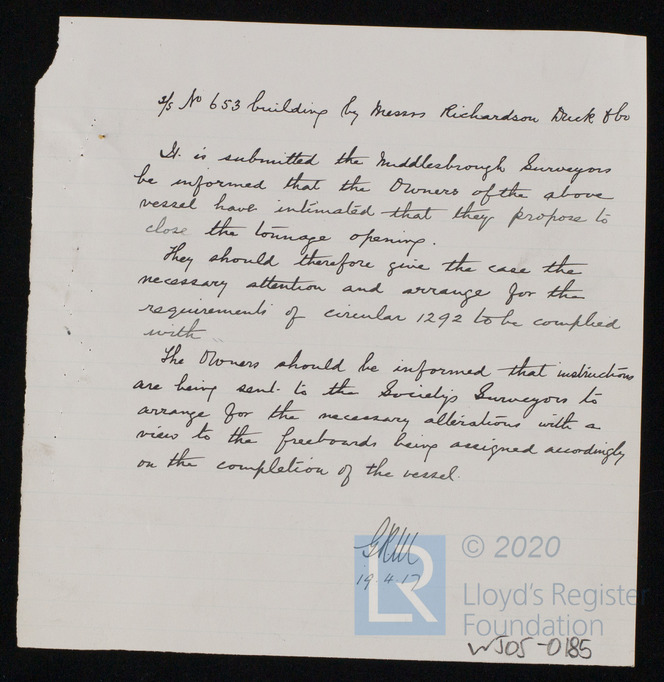 S/S No 653 building by Messrs Richardson Duck & Co
It is submitted the Middlesbrough Surveyors
be informed that the Owners of the above
vessel have intimated that they propose to
close the tonnage opening.
They should therefore give the case the
necessary attention and arrange for the
requirements of circular 1292 to be complied
with
The Owners should be informed that instructions
are being sent to the Society's Surveyors to
arrange for the necessary alterations with a
view to the freeboards being assigned accordingly
on the completion of the vessel.
19.4.17
LR
© 2020
Lloyd's Register
Foundation
W505-0185